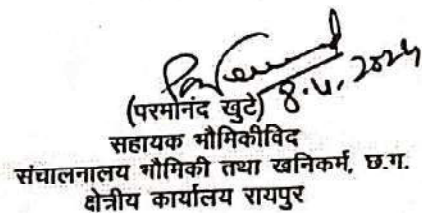 8.4.2024
(परमानंद खुटे)
सहायक भौमिकीविद
संचालनालय भौमिकी तथा खनिकर्म, छ.ग.
क्षेत्रीय कार्यालय रायपुर